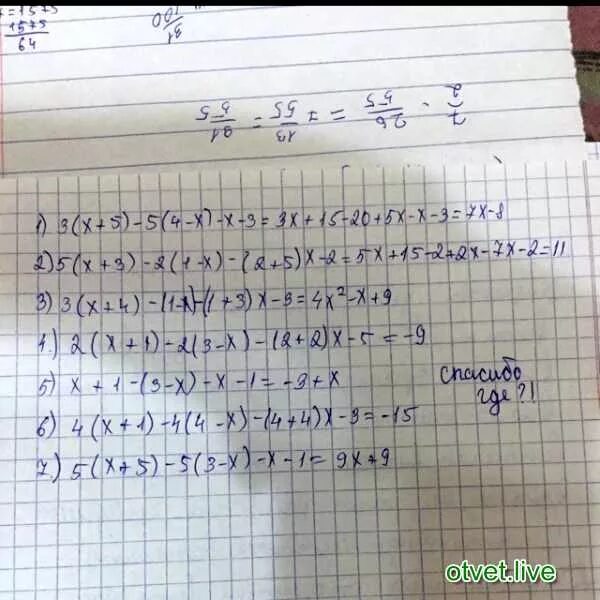 =1575
1575
64
31/100
7/2 · 26/55 = 1 13/55 = 91/55
1) 3(x+5)-5(4-x)-x-3=3x+15-20+5x-x-3=7x-8
2) 5(x+3)-2(1-x)-(2+5)x-2=5x+15-2+2x-7x-2=11
3) 3(x+4)-(1-x)-(1+3)x-3=4x²-x+9
4.) 2(x+1)-2(3-x)-(2+2)x-5=-9
5) x+1-(3-x)-x-1=-3+x
6) 4(x+1)-4(4-x)-(4+4)x-3=-15
7.) 5(x+5)-5(3-x)-x-1=9x+9
спасибо
где?!
otvet.live